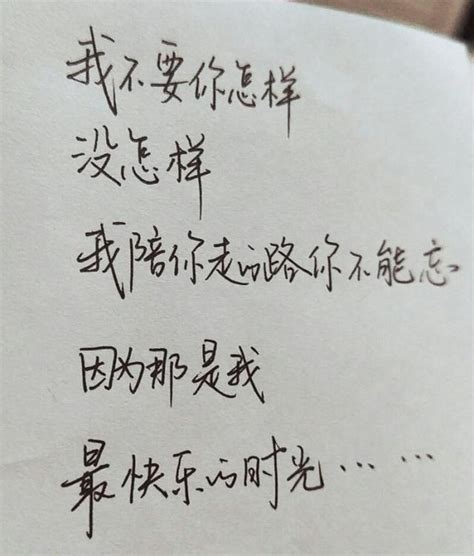 我不要你怎样
没怎样
我陪你走的路你不能忘
因为那是我
最快乐的时光……